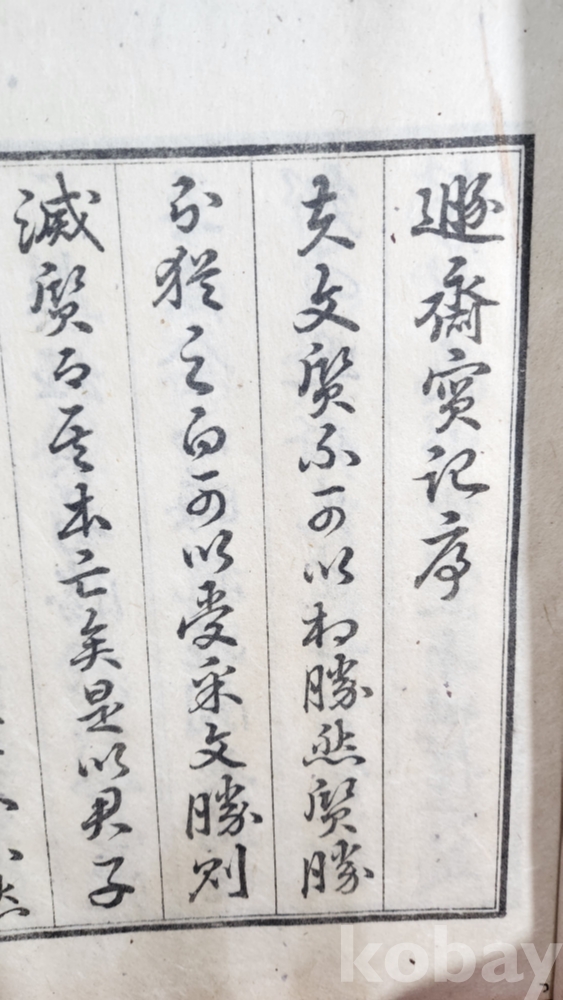 遯齋實記序
夫文質不可以相勝然質勝
猶之白可以受采文勝則
滅質而其本亡矣是以君子